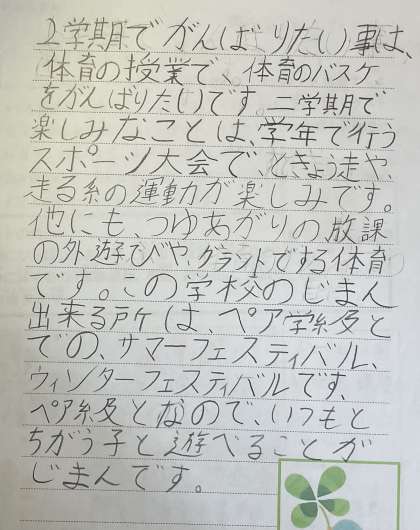 2学期でがんばりたい事は、
体育の授業で、体育のバスケ
をがんばりたいです。二学期で
楽しみなことは、学年で行う
スポーツ大会で、ときょう走や、
走る系の運動が楽しみです。
他にも、つゆあがりの放課
の外遊びや、グラントでする体育
です。この学校のじまん
出来る所は、ペア学級と
での、サマーフェスティバル、
ウィンターフェスティバルです、
ペア級となので、いつもと
ちがう子と遊べることが
じまんです。